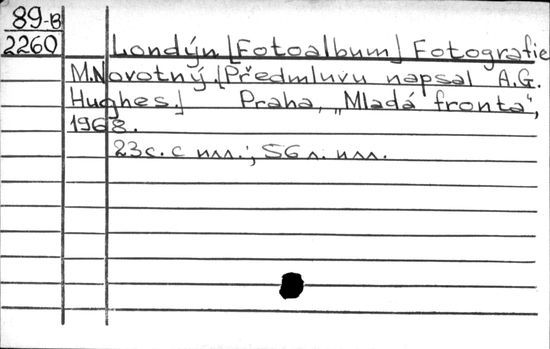 89-В
2260
Londýn [Fotoalbum] Fotografie
M.Novotný. [Předmluvu napsal A.G.
Hughes.] Praha, „Mladá fronta“,
1968.
23с. с илл.; 56 л. илл.